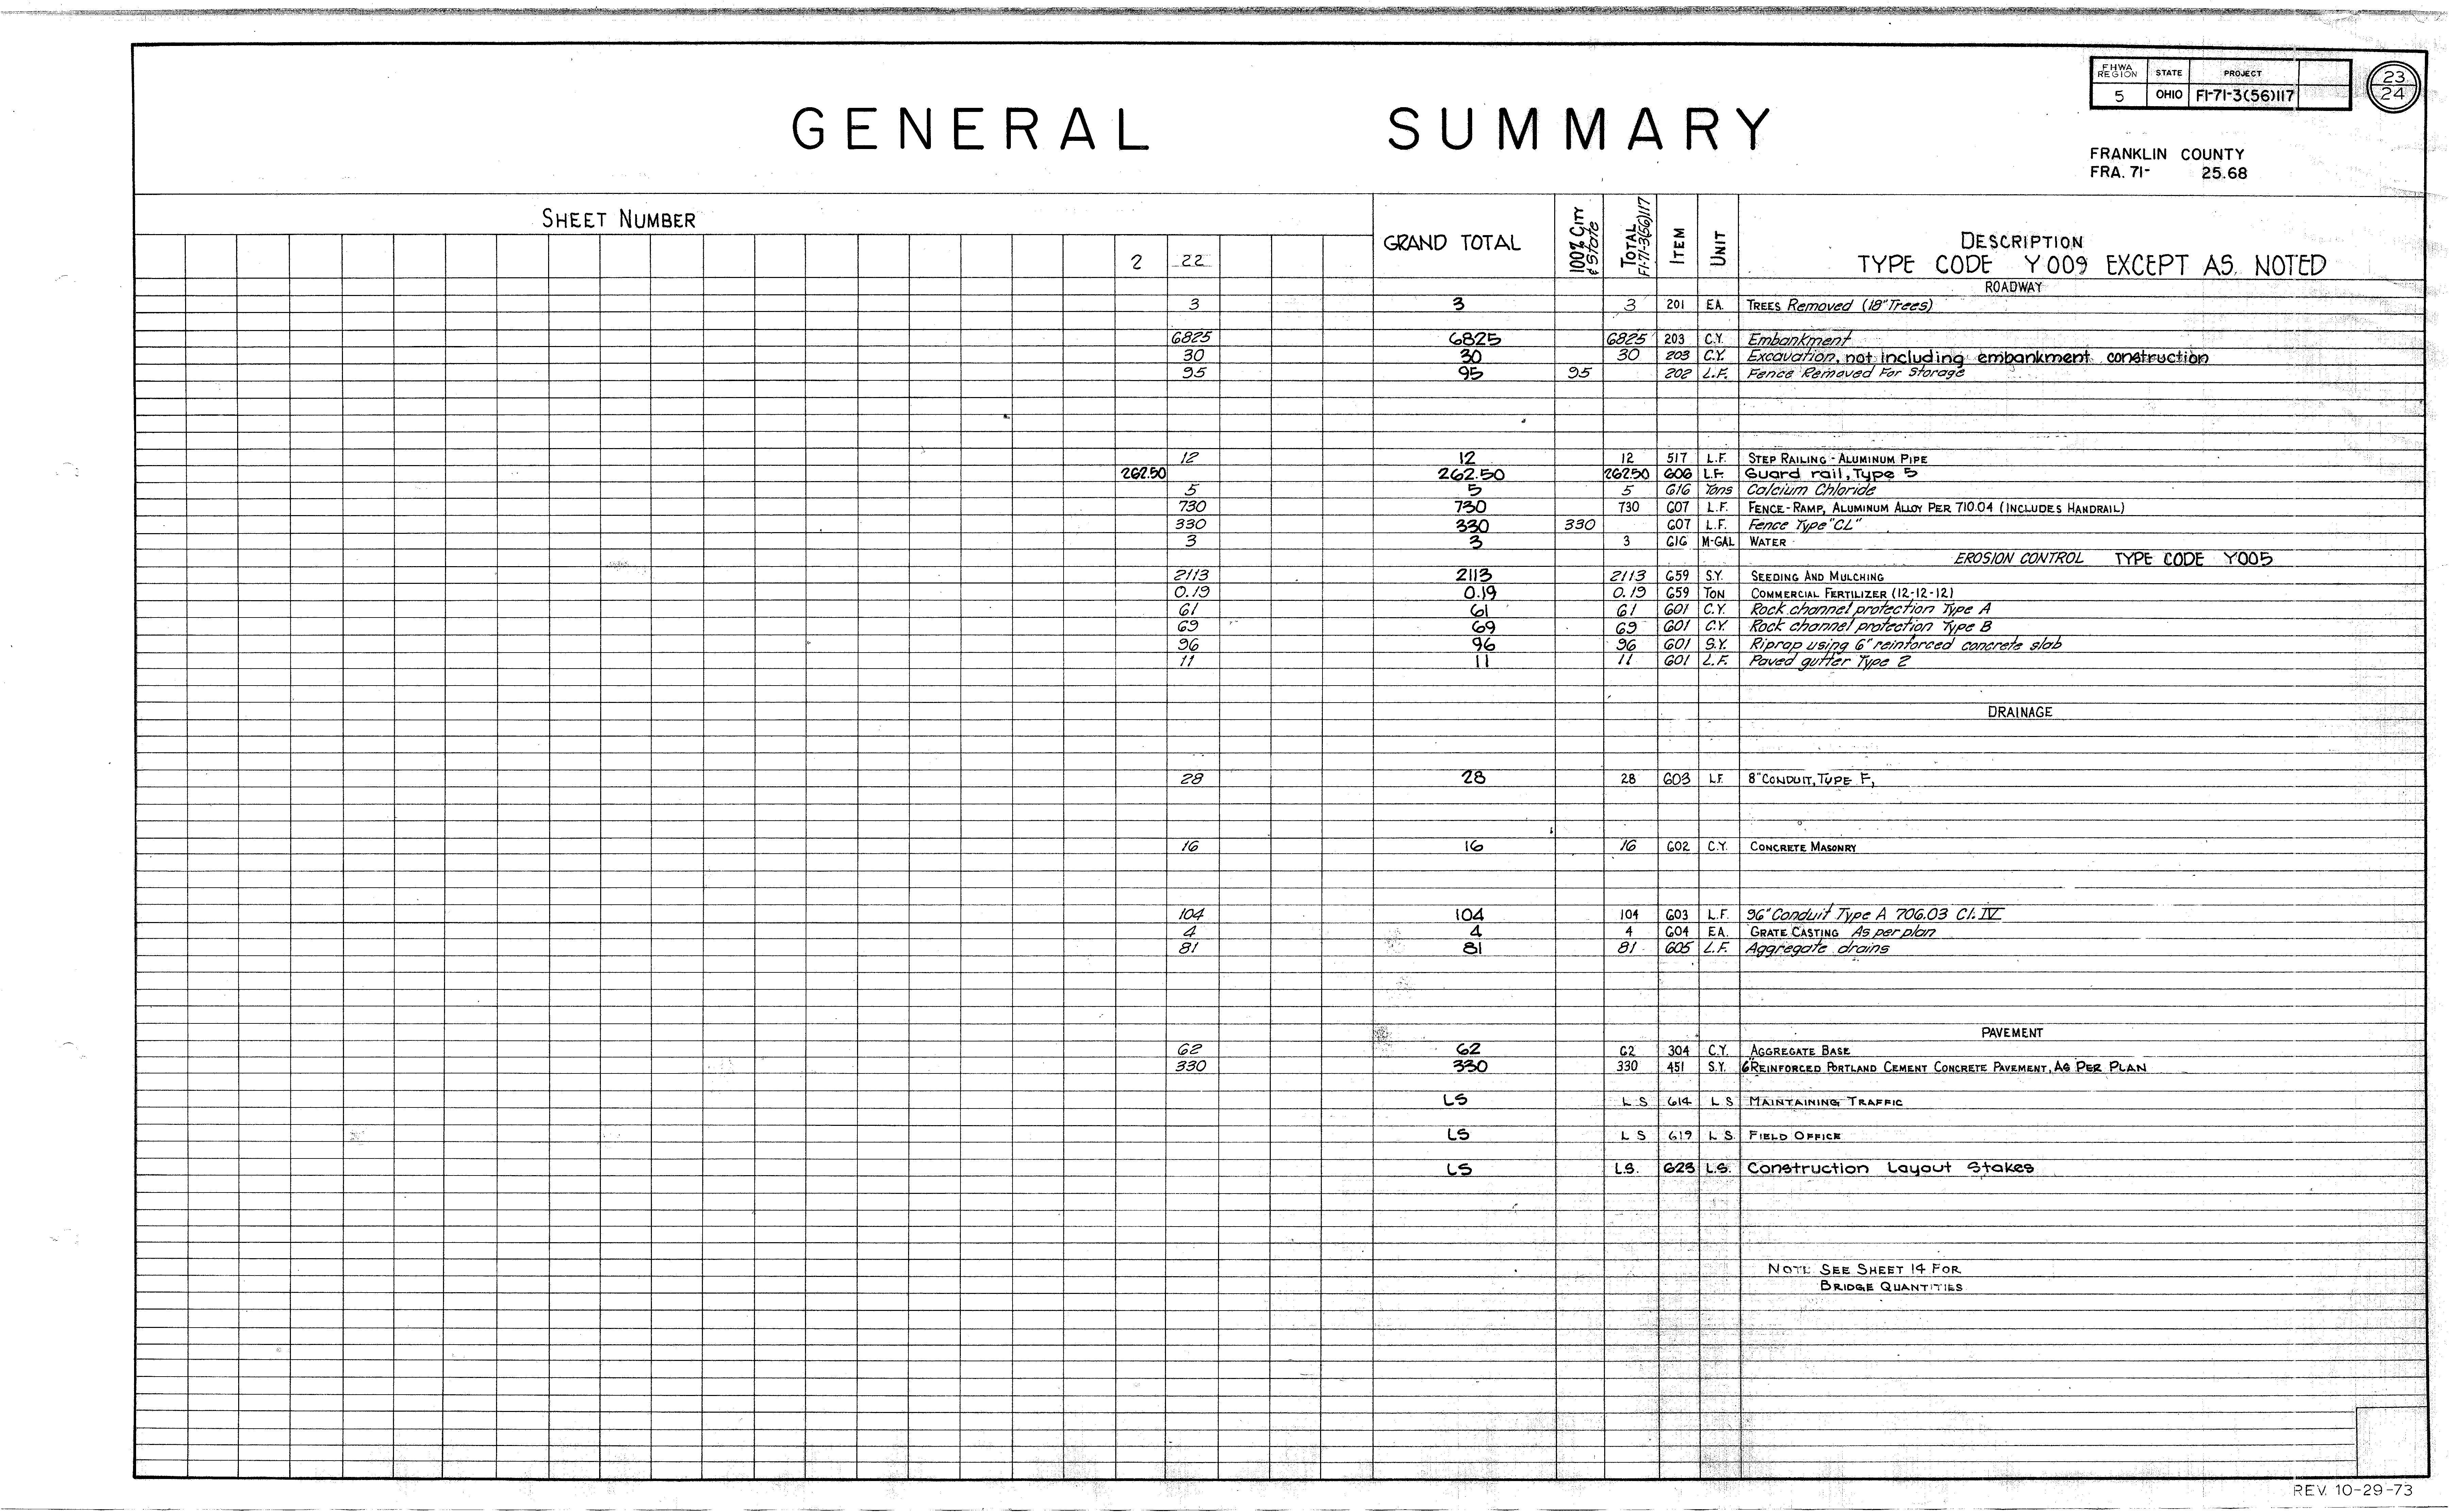 FHWA REGION STATE PROJECT
5 OHIO FI-71-3(56)117
23
24
GENERAL SUMMARY
FRANKLIN COUNTY
FRA. 71- 25.68
SHEET NUMBER
GRAND TOTAL
100% CITY & State
TOTAL FI-71-3(56)117
ITEM
UNIT
DESCRIPTION
2 22
TYPE CODE Y009 EXCEPT AS NOTED
ROADWAY
3 3 3 201 EA. TREES Removed (18" Trees)
6825 6825 6825 203 C.Y. Embankment
30 30 30 203 C.Y. Excavation, not including embankment construction
95 95 95 202 L.F. Fence Removed For Storage
12 12 12 517 L.F. STEP RAILING - ALUMINUM PIPE
262.50 262.50 262.50 606 L.F. Guard rail, Type 5
5 5 5 616 Tons Calcium Chloride
730 730 730 607 L.F. FENCE-RAMP, ALUMINUM ALLOY PER 710.04 (INCLUDES HANDRAIL)
330 330 330 607 L.F. Fence Type "CL"
3 3 3 616 M-GAL WATER
EROSION CONTROL TYPE CODE Y005
2113 2113 2113 659 S.Y. SEEDING AND MULCHING
0.19 0.19 0.19 659 TON COMMERCIAL FERTILIZER (12-12-12)
61 61 61 601 C.Y. Rock channel protection Type A
69 69 69 601 C.Y. Rock channel protection Type B
96 96 96 601 S.Y. Riprap using 6" reinforced concrete slab
11 11 11 601 L.F. Paved gutter Type 2
DRAINAGE
28 28 28 603 L.F. 8" CONDUIT, TYPE F,
16 16 16 602 C.Y. CONCRETE MASONRY
104 104 104 603 L.F. 96" Conduit Type A 706.03 Cl. IV
4 4 4 604 EA. GRATE CASTING As per plan
81 81 81 605 L.F. Aggregate drains
PAVEMENT
62 62 62 304 C.Y. AGGREGATE BASE
330 330 330 451 S.Y. 6" REINFORCED PORTLAND CEMENT CONCRETE PAVEMENT, AS PER PLAN
LS LS 614 LS MAINTAINING TRAFFIC
LS LS 619 LS FIELD OFFICE
LS L.S. 623 L.S. Construction Layout Stakes
NOTE SEE SHEET 14 FOR
BRIDGE QUANTITIES
REV. 10-29-73